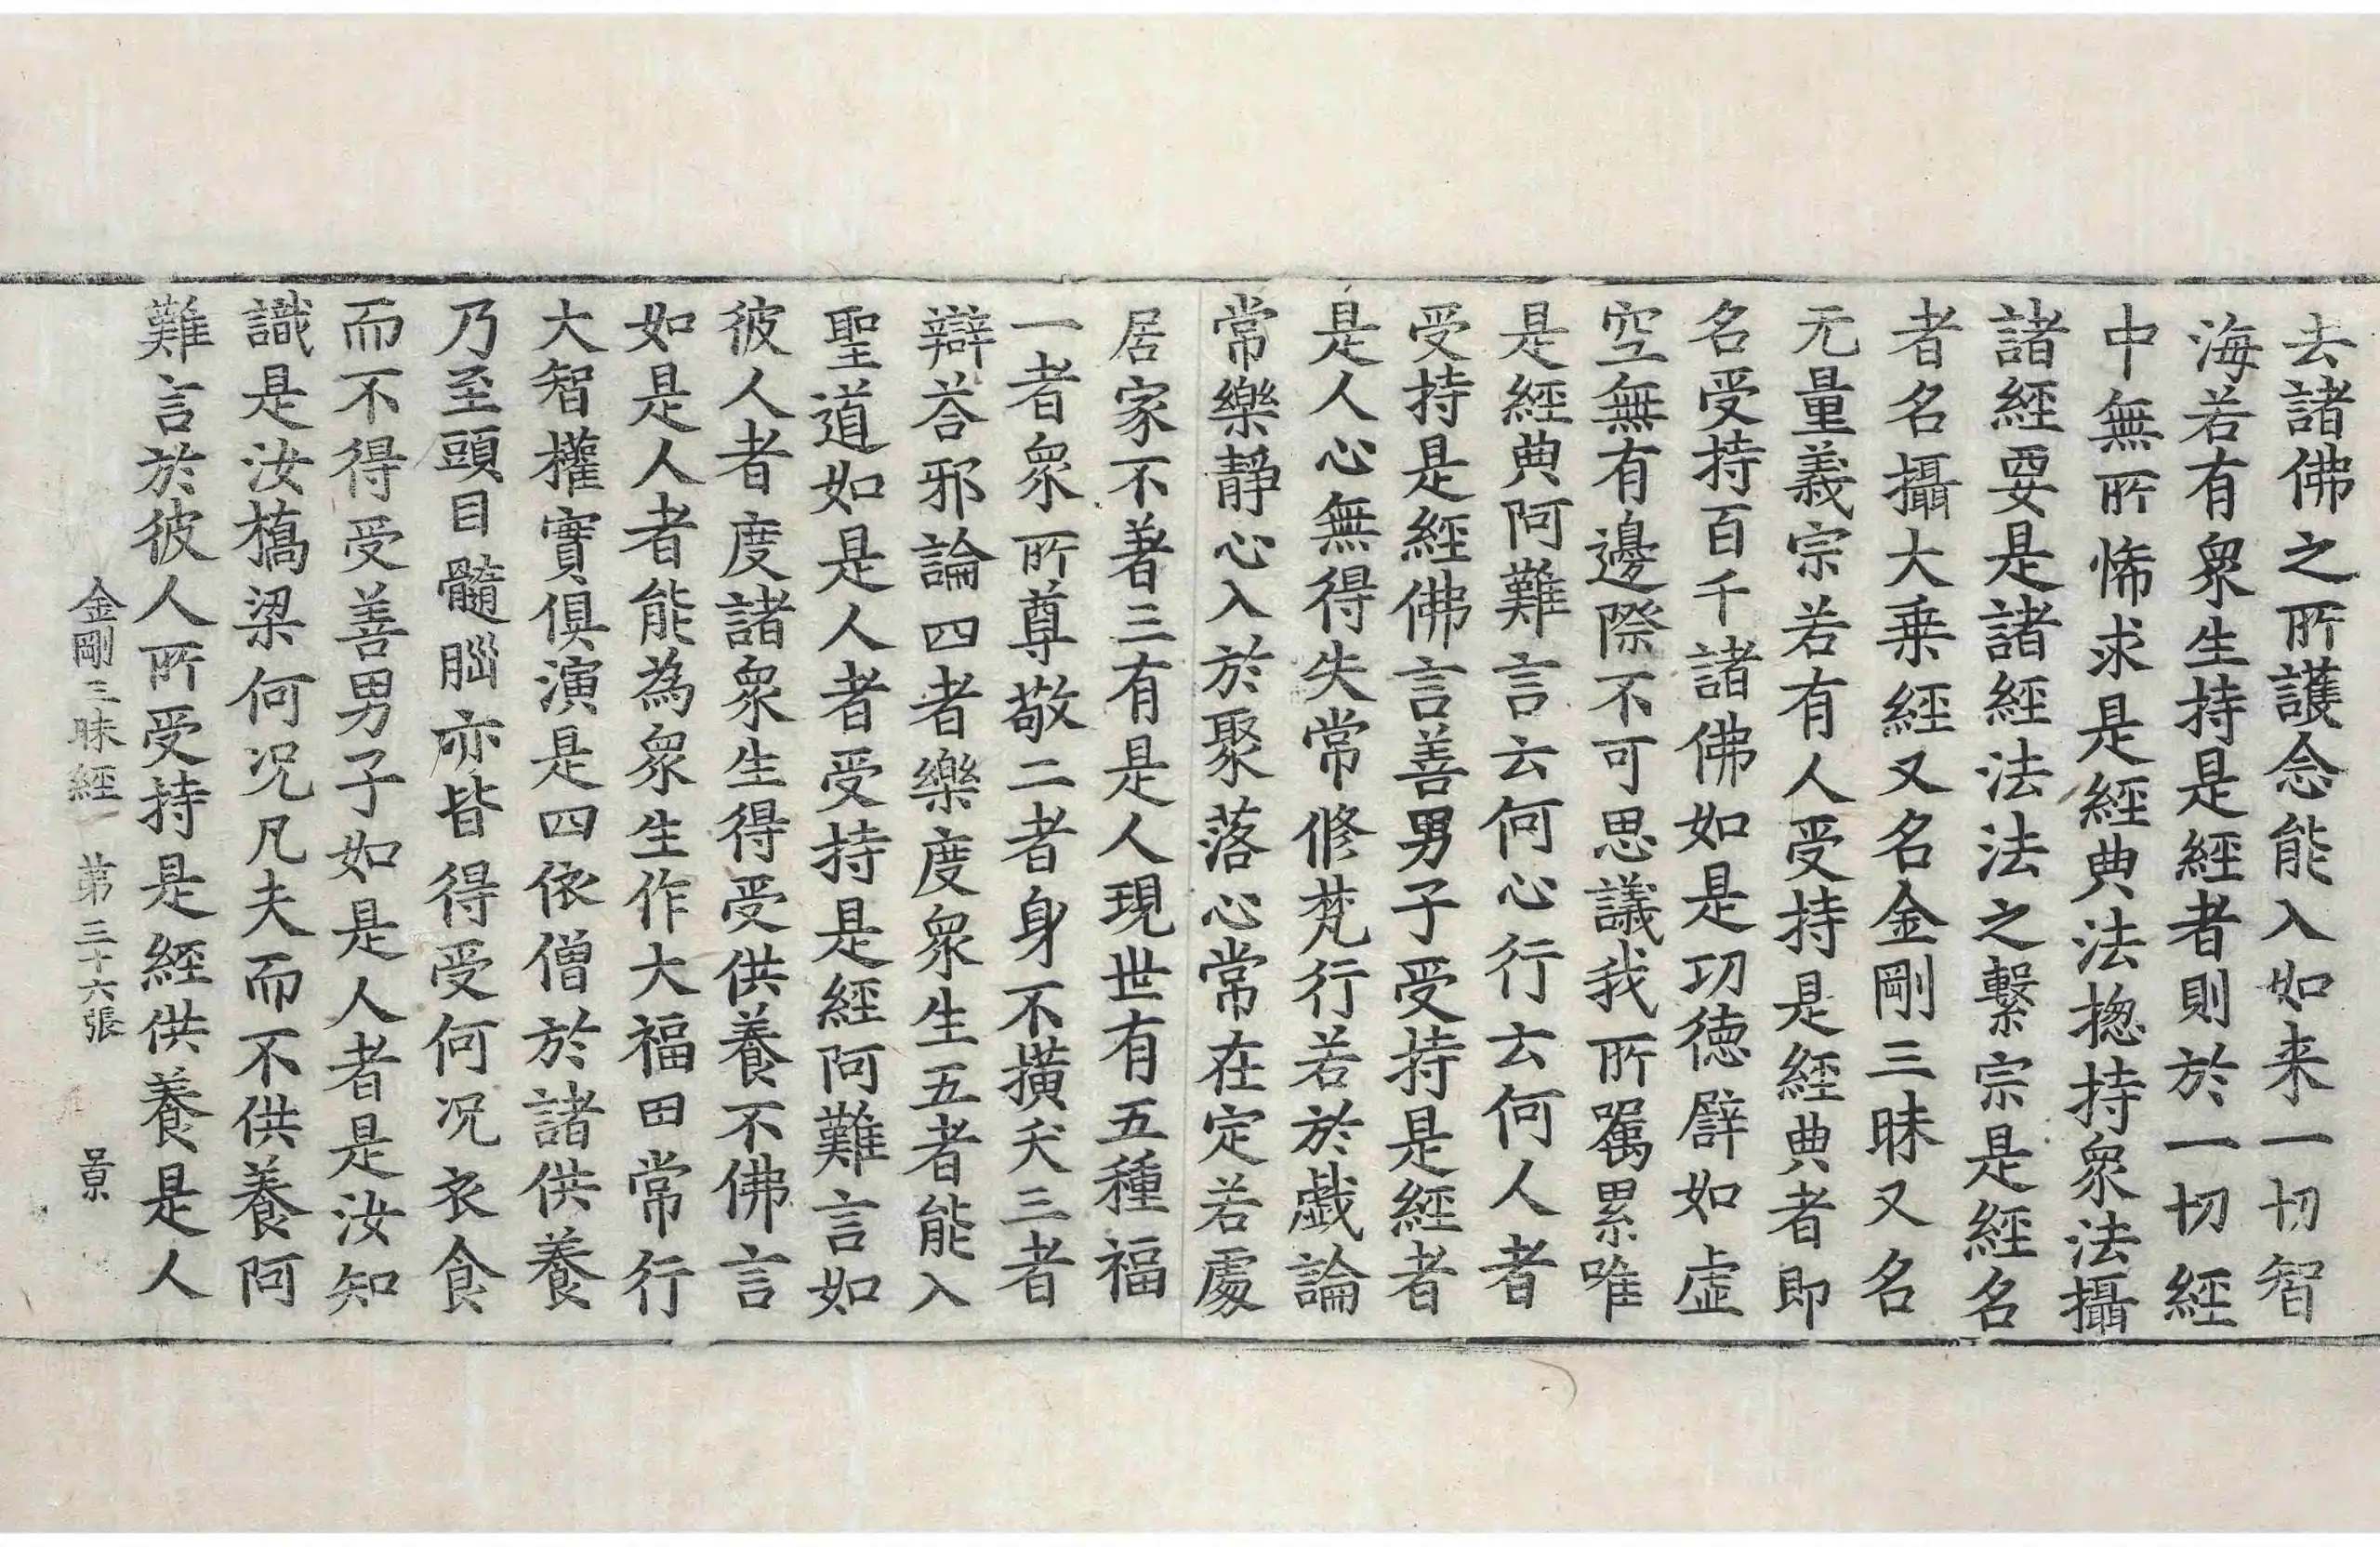 去諸佛之所護念能入如来一切智
海若有衆生持是經者則於一切經
中無所悕求是經典法揔持衆法攝
諸經要是諸經法法之繫宗是經名
者名攝大乗經又名金剛三昧又名
无量義宗若有人受持是經典者即
名受持百千諸佛如是功德譬如虛
空無有邊際不可思議我所囑累唯
是經典阿難言云何心行云何人者
受持是經佛言善男子受持是經者
是人心無得失常修梵行若於戯論
常樂靜心入於聚落心常在定若處
居家不著三有是人現世有五種福
一者衆所尊敬二者身不横夭三者
辯荅邪論四者樂度衆生五者能入
聖道如是人者受持是經阿難言如
彼人者度諸衆生得受供養不佛言
如是人者能為衆生作大福田常行
大智權實俱演是四依僧於諸供養
乃至頭目髓腦亦皆得受何况衣食
而不得受善男子如是人者是汝知
識是汝橋梁何况凡夫而不供養阿
難言於彼人所受持是經供養是人
金剛三昧經 第三十六張 景